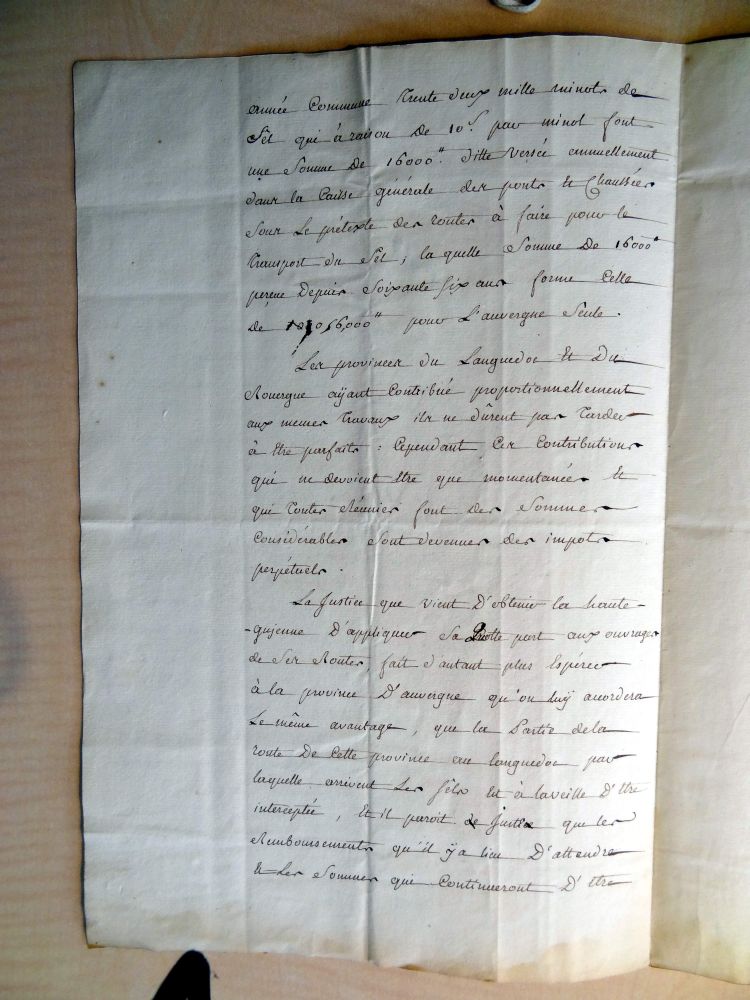 année Commune trente deux mille minots de
Sêl qui à raison de 10ˢ. par minot font
une Somme de 16000ᵗᵗ. ditte versée annuellement
dans la Caisse générale des ponts et Chaussées
sous le prétexte des routes à faire pour le
transport du Sêl, la quelle Somme de 16000ᵗᵗ
perçue depuis Soixante Six ans forme Celle
de 1,056,000ᵗᵗ pour L'auvergne Seule.
Les provinces du Languedoc et du
Rouergue aÿant Contribué proportionnellement
aux memes travaux ils ne dûrent pas tarder
à être parfaits : Cependant Ces Contributions
qui ne devoient être que momentanées et
qui toutes Réunies font des Sommes
Considérables Sont devenues des impots
perpétuels.
La Justice que vient D'obtenir la haute-
-guienne D'appliquer Sa Quotte part aux ouvrages
de Ses Routes, fait d'autant plus Espérer
à la province D'auvergne qu'on luy acordera
Le même avantage, que la Partie dela
route De Cette province au languedoc par
laquelle arrivent Les Sêls Est à laveille D'être
interceptée, Et il paroit de Justice que les
Remboursements qu'il ÿ a lieu D'attendre
Et Les Sommes qui Continueront D'être